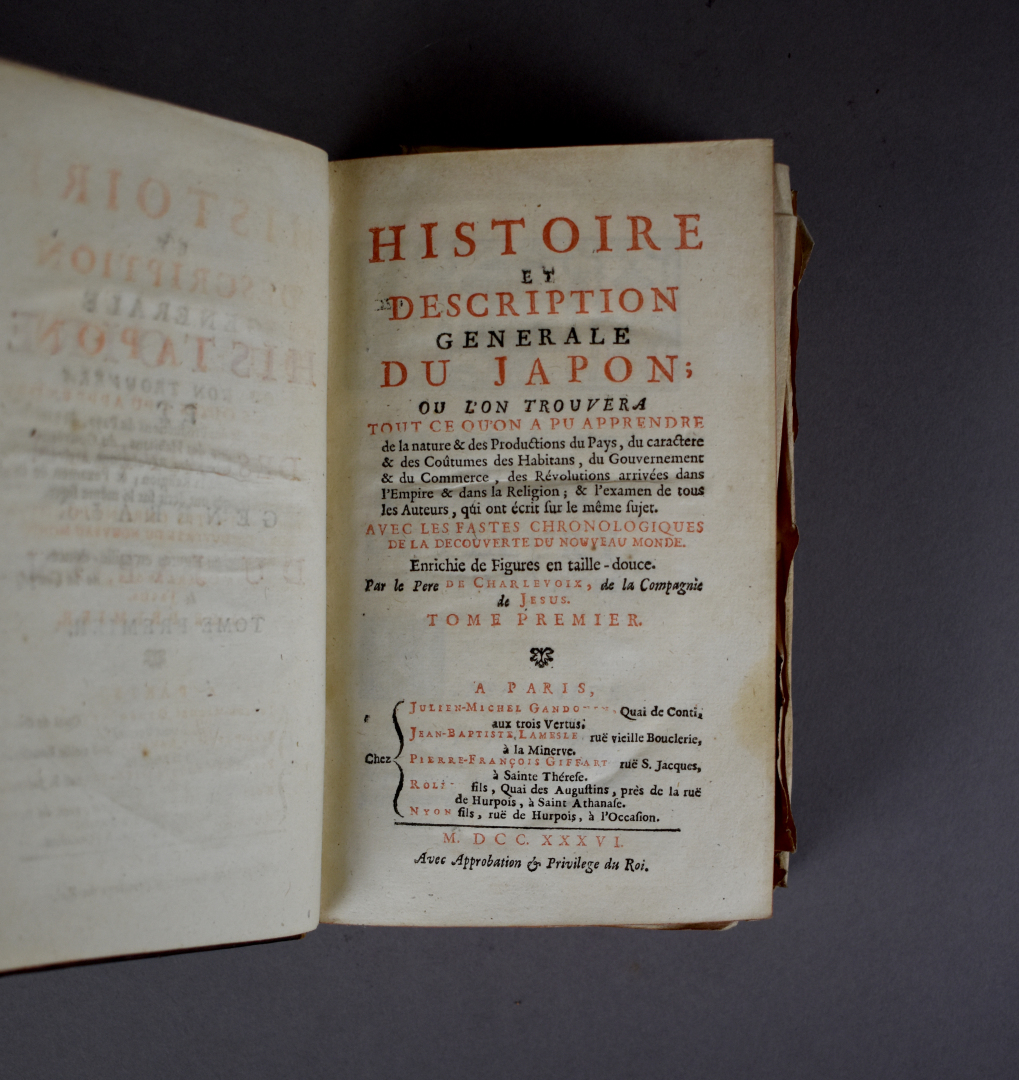 HISTOIRE
ET
DESCRIPTION
GENERALE
DU JAPON;
OU L'ON TROUVERA
TOUT CE QU'ON A PU APPRENDRE
de la nature & des Productions du Pays, du caractere
& des Coûtumes des Habitans, du Gouvernement
& du Commerce, des Révolutions arrivées dans
l'Empire & dans la Religion; & l'examen de tous
les Auteurs, qui ont écrit ſur le même ſujet.
AVEC LES FASTES CHRONOLOGIQUES
DE LA DECOUVERTE DU NOUVEAU MONDE.
Enrichie de Figures en taille-douce.
Par le Pere DE CHARLEVOIX, de la Compagnie
de JESUS.
TOME PREMIER.
A PARIS,
Chez
JULIEN-MICHEL Quai de Conti,
aux trois Vertus.
JEAN-BAPTISTE, LAMESLE ruë vieille Bouclerie,
à la Minerve.
PIERRE-FRANÇOIS GIFFART ruë S. Jacques,
à Sainte Théreſe.
fils, Quai des Auguſtins, près de la ruë
de Hurpois, à Saint Athanaſe.
NYON fils, ruë de Hurpois, à l'Occaſion.
M. DCC. XXXVI.
Avec Approbation & Privilege du Roi.